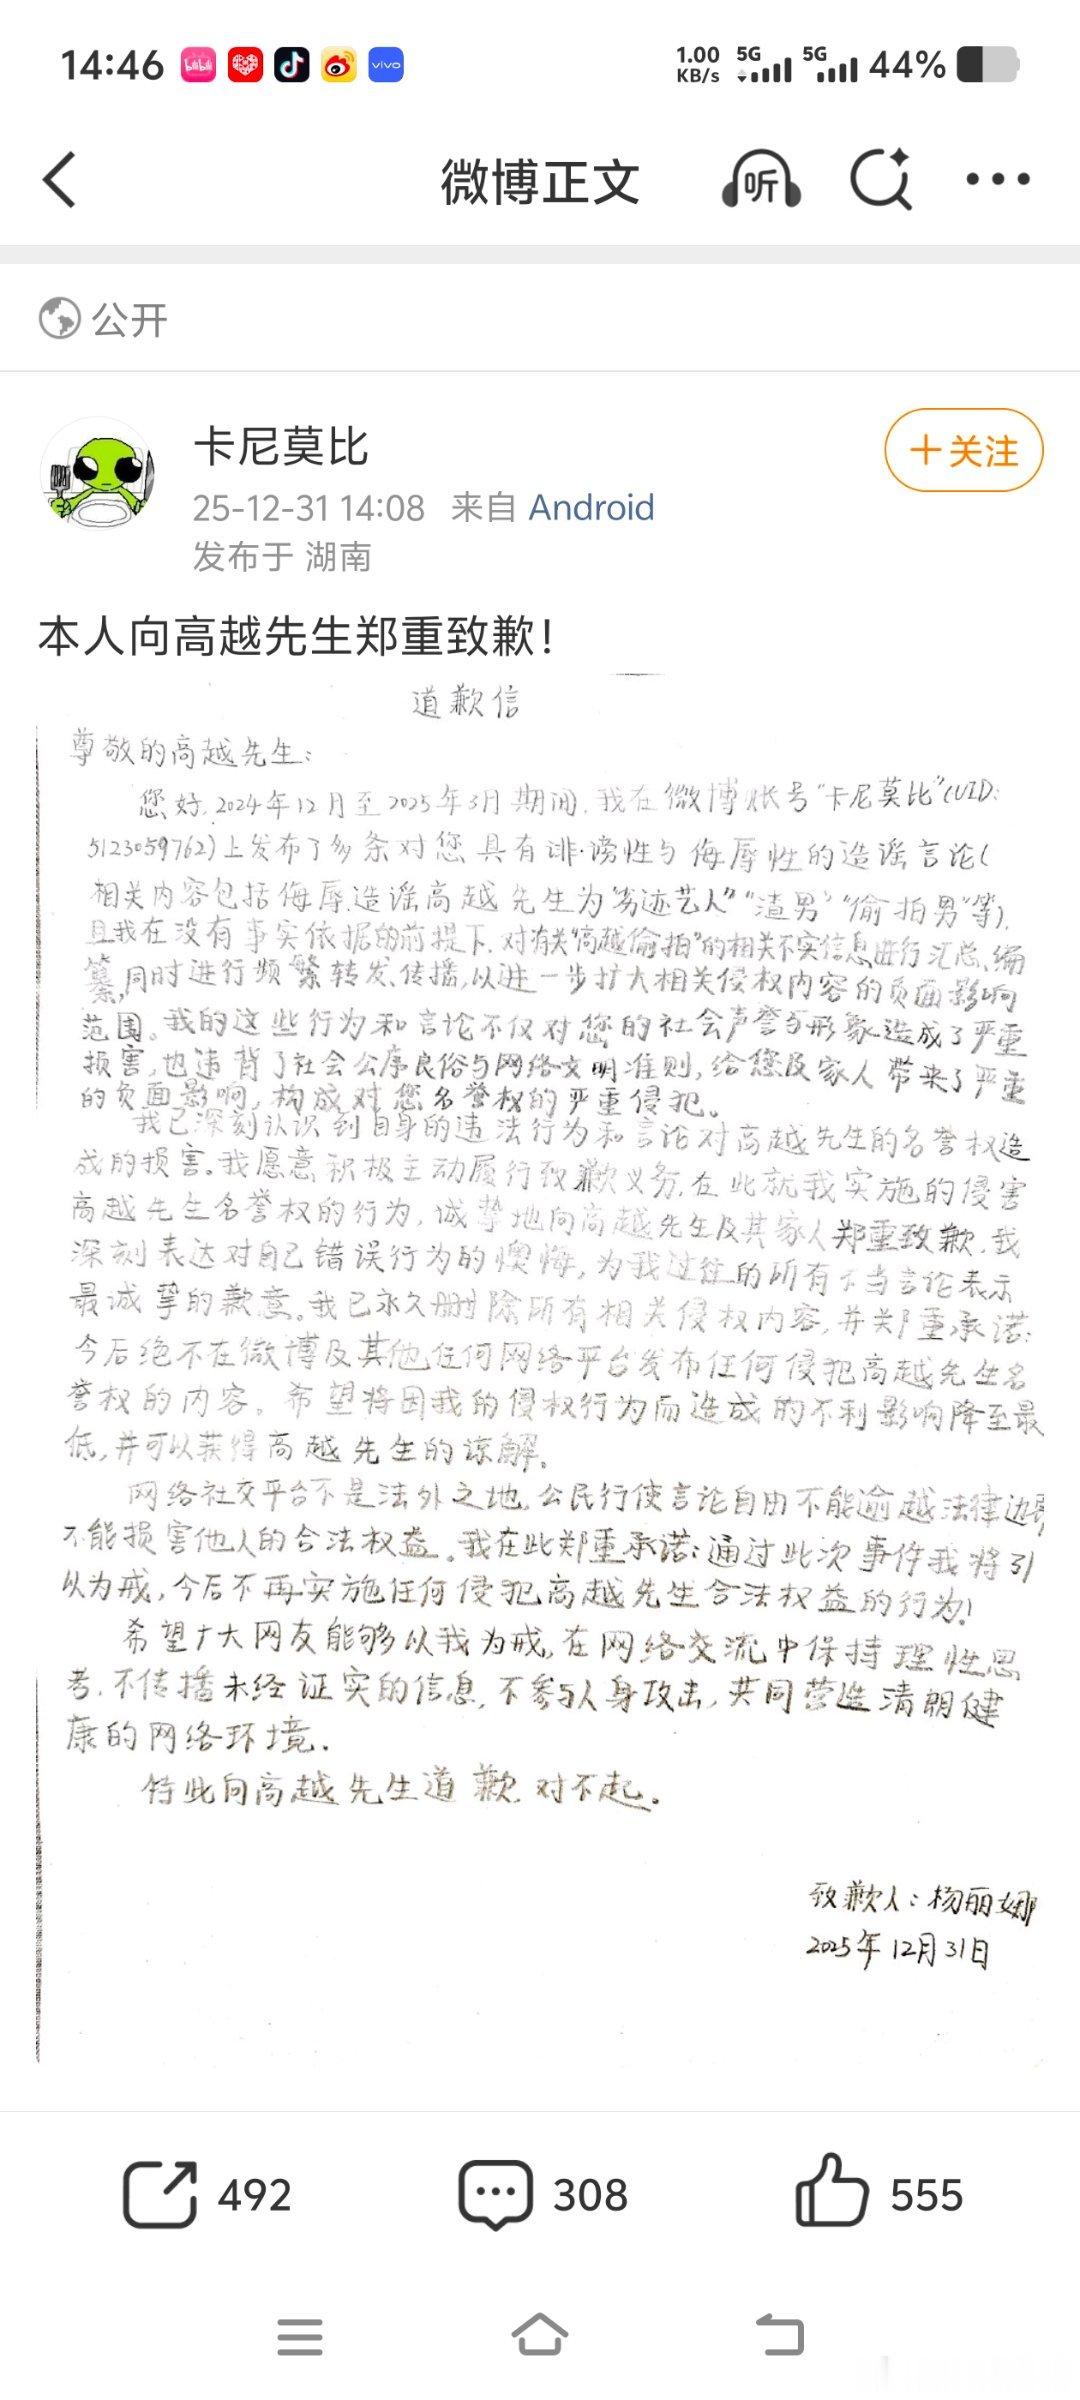 14:46
bilibili
vivo
1.00 KB/s 5G 5G 44%
微博正文
听
公开
卡尼莫比
+关注
25-12-31 14:08 来自 Android
发布于 湖南
本人向高越先生郑重致歉！
道歉信
尊敬的高越先生：
您好,2024年12月至2025年3月期间,我在微博帐号"卡尼莫比"(UID:
5123059762)上发布了多条对您具有诽谤性与侮辱性的造谣言论(
相关内容包括侮辱、造谣高越先生为"劣迹艺人""渣男""偷拍男"等),
且我在没有事实依据的前提下,对有关"高越偷拍"的相关不实信息进行汇总、编
纂,同时进行频繁转发、传播,以进一步扩大相关侵权内容的负面影响
范围。我的这些行为和言论不仅对您的社会声誉与形象造成了严重
损害,也违背了社会公序良俗与网络文明准则,给您及家人带来了严重
的负面影响,构成对您名誉权的严重侵犯。
我已深刻认识到自身的违法行为和言论对高越先生的名誉权造
成的损害。我愿意积极主动履行致歉义务,在此就我实施的侵害
高越先生名誉权的行为,诚挚地向高越先生及其家人郑重致歉,我
深刻表达对自己错误行为的懊悔,为我过往的所有不当言论表示
最诚挚的歉意。我已永久删除所有相关侵权内容,并郑重承诺:
今后绝不在微博及其他任何网络平台发布任何侵犯高越先生名
誉权的内容。希望将因我的侵权行为而造成的不利影响降至最
低,并可以获得高越先生的谅解。
网络社交平台不是法外之地,公民行使言论自由不能逾越法律边界
不能损害他人的合法权益。我在此郑重承诺:通过此次事件我将引
以为戒,今后不再实施任何侵犯高越先生合法权益的行为!
希望广大网友能够以我为戒,在网络交流中保持理性思
考,不传播未经证实的信息,不参与人身攻击,共同营造清朗健
康的网络环境.
特此向高越先生道歉.对不起。
致歉人：杨丽娜
2025年12月31日
492
308
555